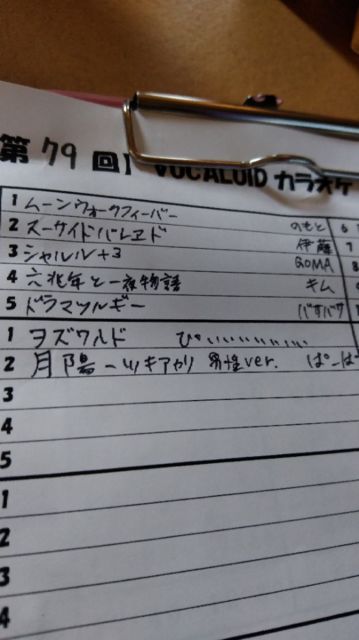 第79回! VOCALOIDカラオケ
1 ムーンウォークフィーバー 6
2 スーサイドパレヱド のもと 7
3 シャルル+3 伊藤
4 六兆年と一夜物語 QOMA
5 ドラマツルギー キム
バサバサ
1 ヲズワルド ぴぃぃぃぃぃぃぃ
2 月陽-ツキアカリ 男性ver. ぱーぱ
3
4
5
1
2
3
4